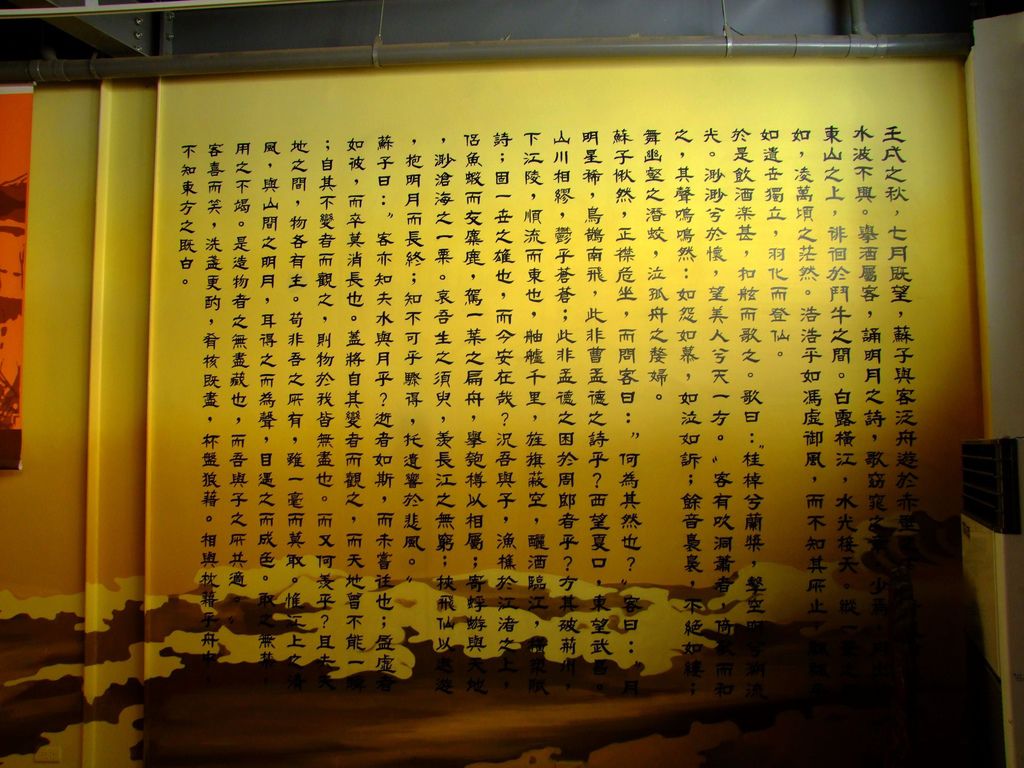 壬戌之秋，七月既望，蘇子與客泛舟遊於赤壁
水波不興。舉酒屬客，誦明月之詩，歌窈窕之章。少焉，月出
東山之上，徘徊於鬥牛之間。白露橫江，水光接天。縱一葦之
如，凌萬頃之茫然。浩浩乎如馮虛御風，而不知其所止
如遺世獨立，羽化而登仙。
於是飲酒樂甚，扣舷而歌之。歌曰："桂棹兮蘭槳，擊空明兮溯流
光。渺渺兮於懷，望美人兮天一方。"客有吹洞蕭者，倚歌而和
之，其聲嗚嗚然：如怨如慕，如泣如訴；餘音裊裊，不絕如縷；
舞幽壑之潛蛟，泣孤舟之嫠婦。
蘇子愀然，正襟危坐，而問客曰："何為其然也？"客曰："月
明星稀，烏鵲南飛，此非曹孟德之詩乎？西望夏口，東望武昌。
山川相繆，鬱乎蒼蒼；此非孟德之困於周郎者乎？方其破荊州，
下江陵，順流而東也，舳艫千里，旌旗蔽空，釃酒臨江，橫槊賦
詩；固一世之雄也，而今安在哉？況吾與子，漁樵於江渚之上，
侶魚蝦而友麋鹿，駕一葉之扁舟，舉匏樽以相屬；寄蜉蝣與天地
，渺滄海之一粟。哀吾生之須臾，羨長江之無窮；挾飛仙以遨遊
，抱明月而長終；知不可乎驟得，托遺響於悲風。"
蘇子曰："客亦知夫水與月乎？逝者如斯，而未嘗往也；盈虛者
如彼，而卒莫消長也。蓋將自其變者而觀之，而天地曾不能一瞬
；自其不變者而觀之，則物於我皆無盡也。而又何羨乎？且夫天
地之間，物各有主。苟非吾之所有，雖一毫而莫取。惟江上之清
風，與山間之明月，耳得之而為聲，目遇之而成色。取之無禁，
用之不竭。是造物者之無盡藏也，而吾與子之所共適。"
客喜而笑，洗盞更酌，肴核既盡，杯盤狼藉。相與枕藉乎舟中，
不知東方之既白。